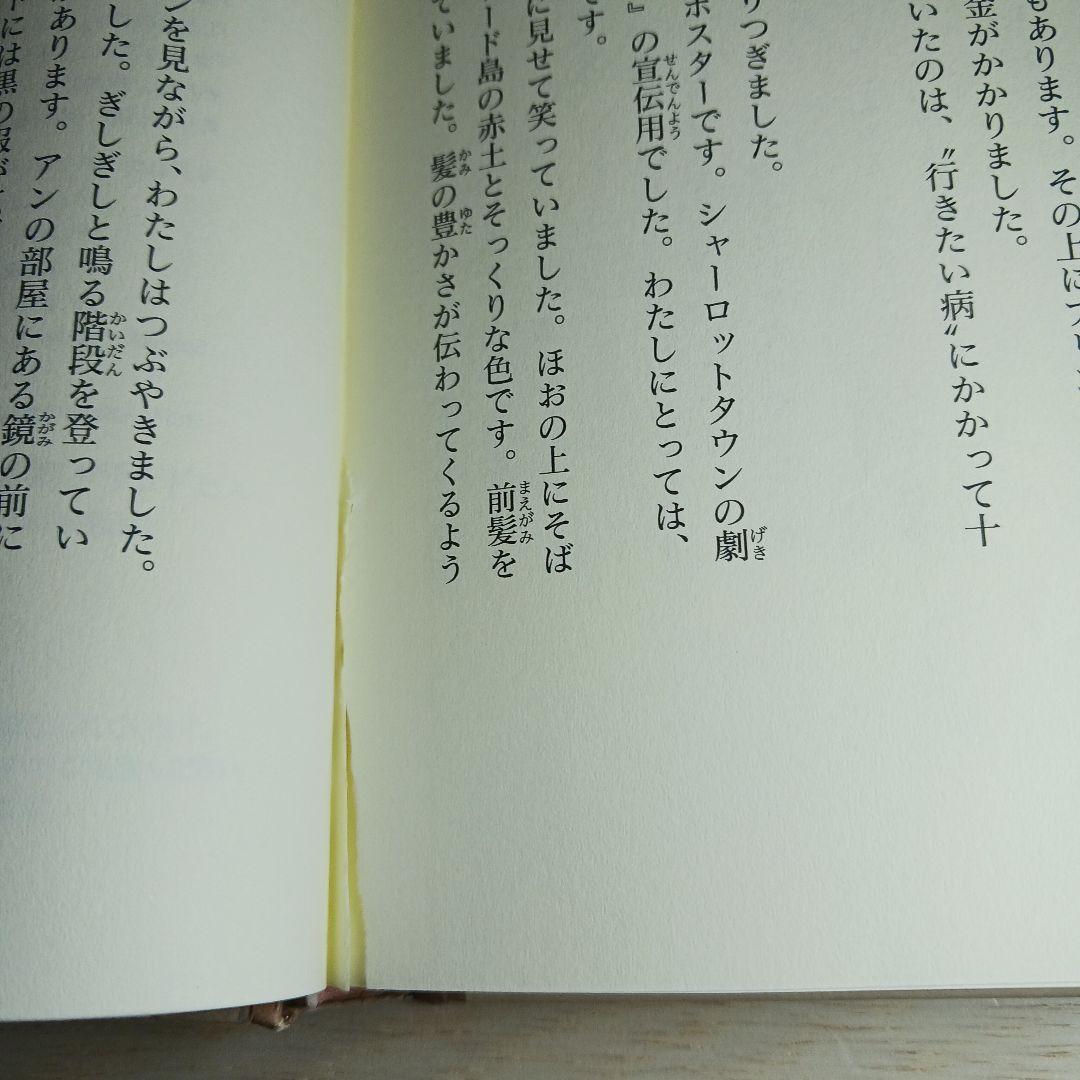 もあります。その上に
金がかかりました。
いたのは、〝行きたい病〟にかかって十
りつぎました。
ポスターです。シャーロットタウンの劇
げき
』の宣伝用でした。わたしにとっては、
せんでんよう
です。
に見せて笑っていました。ほおの上にそば
ード島の赤土とそっくりな色です。前髪を
まえがみ
ていました。髪の豊かさが伝わってくるよう
かみ
ゆた
ンを見ながら、わたしはつぶやきました。
した。ぎしぎしと鳴る階段を登ってい
かいだん
があります。アンの部屋にある鏡の前に
かがみ
には黒の服が